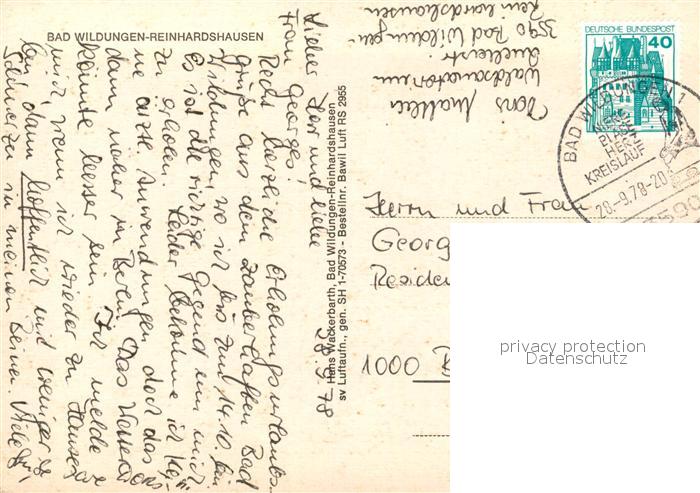 BAD WILDUNGEN-REINHARDSHAUSEN
Lieber Herr und liebe
Frau Georges!
Recht herzliche Erholungsurlaubs-
grüße aus dem zauberhaften Bad
Wildungen, wo ich bis zum 14.10. bin
Es ist die richtige Gegend um mich
zu erholen. Leider bekomme ich kei-
ne Anwendungen, doch das
dann näher in Berlin. Das Wetter
könnte besser sein. Ich melde
mich, wenn ich wieder zu Hause
bin, dann hoffentlich mit weniger
Schmerzen in meinen Beinen. Viele
28.9.78
Hans Wackerbarth, Bad Wildungen-Reinhardshausen
sv Luftaufn., gen. SH 1-70573 - Bestellnr. Bawil Luft RS 2955
Hans
Waldsanatorium
Quellenstr.
3590 Bad Wildungen-
Reinhardshausen
DEUTSCHE BUNDESPOST
40
BAD WILDUNGEN 1
KREISLAUF
28.-9.78-20
3590
Herrn und Frau
Georg
Residen
1000 B
privacy protection
Datenschutz